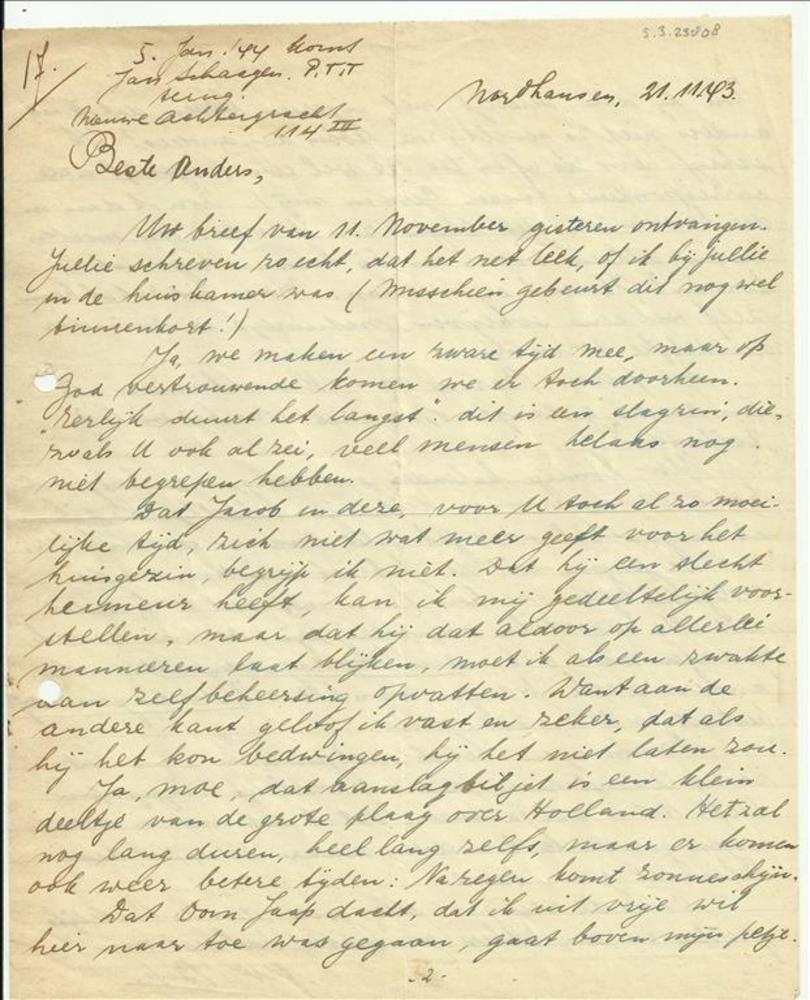 5.3.23808
17.
5. Jan. '44 komt
Jan Schaagen. P.T.T
terug.
Nieuwe Achtergracht
114 III
Nordhausen, 21.11.43.
Beste Ouders,
Uw brief van 11. November gisteren ontvangen.
Jullie schreven zo echt, dat het net leek, of ik bij jullie
in de huiskamer was (Misschien gebeurt dit nog wel
binnenkort!)
Ja, we maken een zware tijd mee, maar op
God vertrouwende komen we er toch doorheen.
"Eerlijk duurt het langst": dit is een slagzin, die,
zoals U ook al zei, veel mensen helaas nog
niet begrepen hebben.
Dat Jacob in deze, voor U toch al zo moei-
lijke tijd, zich niet wat meer geeft voor het
huisgezin, begrijp ik niet. Dat hij een slecht
humeur heeft, kan ik mij gedeeltelijk voor-
stellen, maar dat hij dat aldoor op allerlei
mannieren laat blijken, moet ik als een zwakte
aan zelfbeheersing opvatten. Want aan de
andere kant geloof ik vast en zeker, dat als
hij het kon bedwingen, hij het niet laten zou.
Ja, moe, dat aanslagbiljet is een klein
deeltje van de grote plaag over Holland. Het zal
nog lang duren, heel lang zelfs, maar er komen
ook weer betere tijden: Na regen komt zonneschijn.
Dat Oom Jaap dacht, dat ik uit vrije wil
hier naar toe was gegaan, gaat boven mijn petje.
-2-